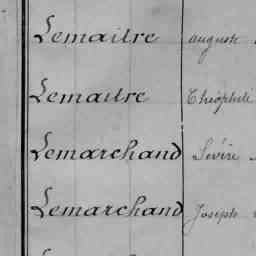 Lemaitre auguste
Lemaitre Théophile
Lemarchand Sévère
Lemarchand Joseph